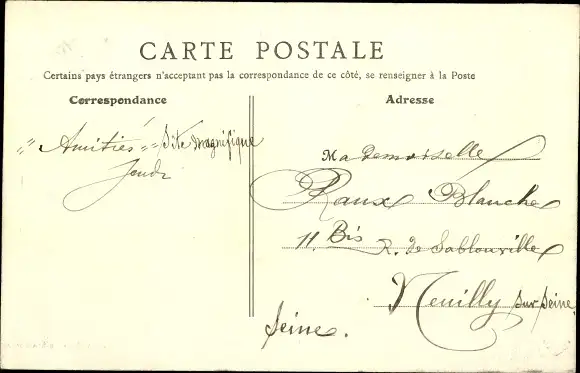 CARTE POSTALE
Certains pays étrangers n'acceptant pas la correspondance de ce côté, se renseigner à la Poste
Correspondance
"Amitiés" Site magnifique
Jeudi
Adresse
Mademoiselle
Raux Blanche
11 Bis R. de Sablonville
Neuilly sur Seine
Seine.